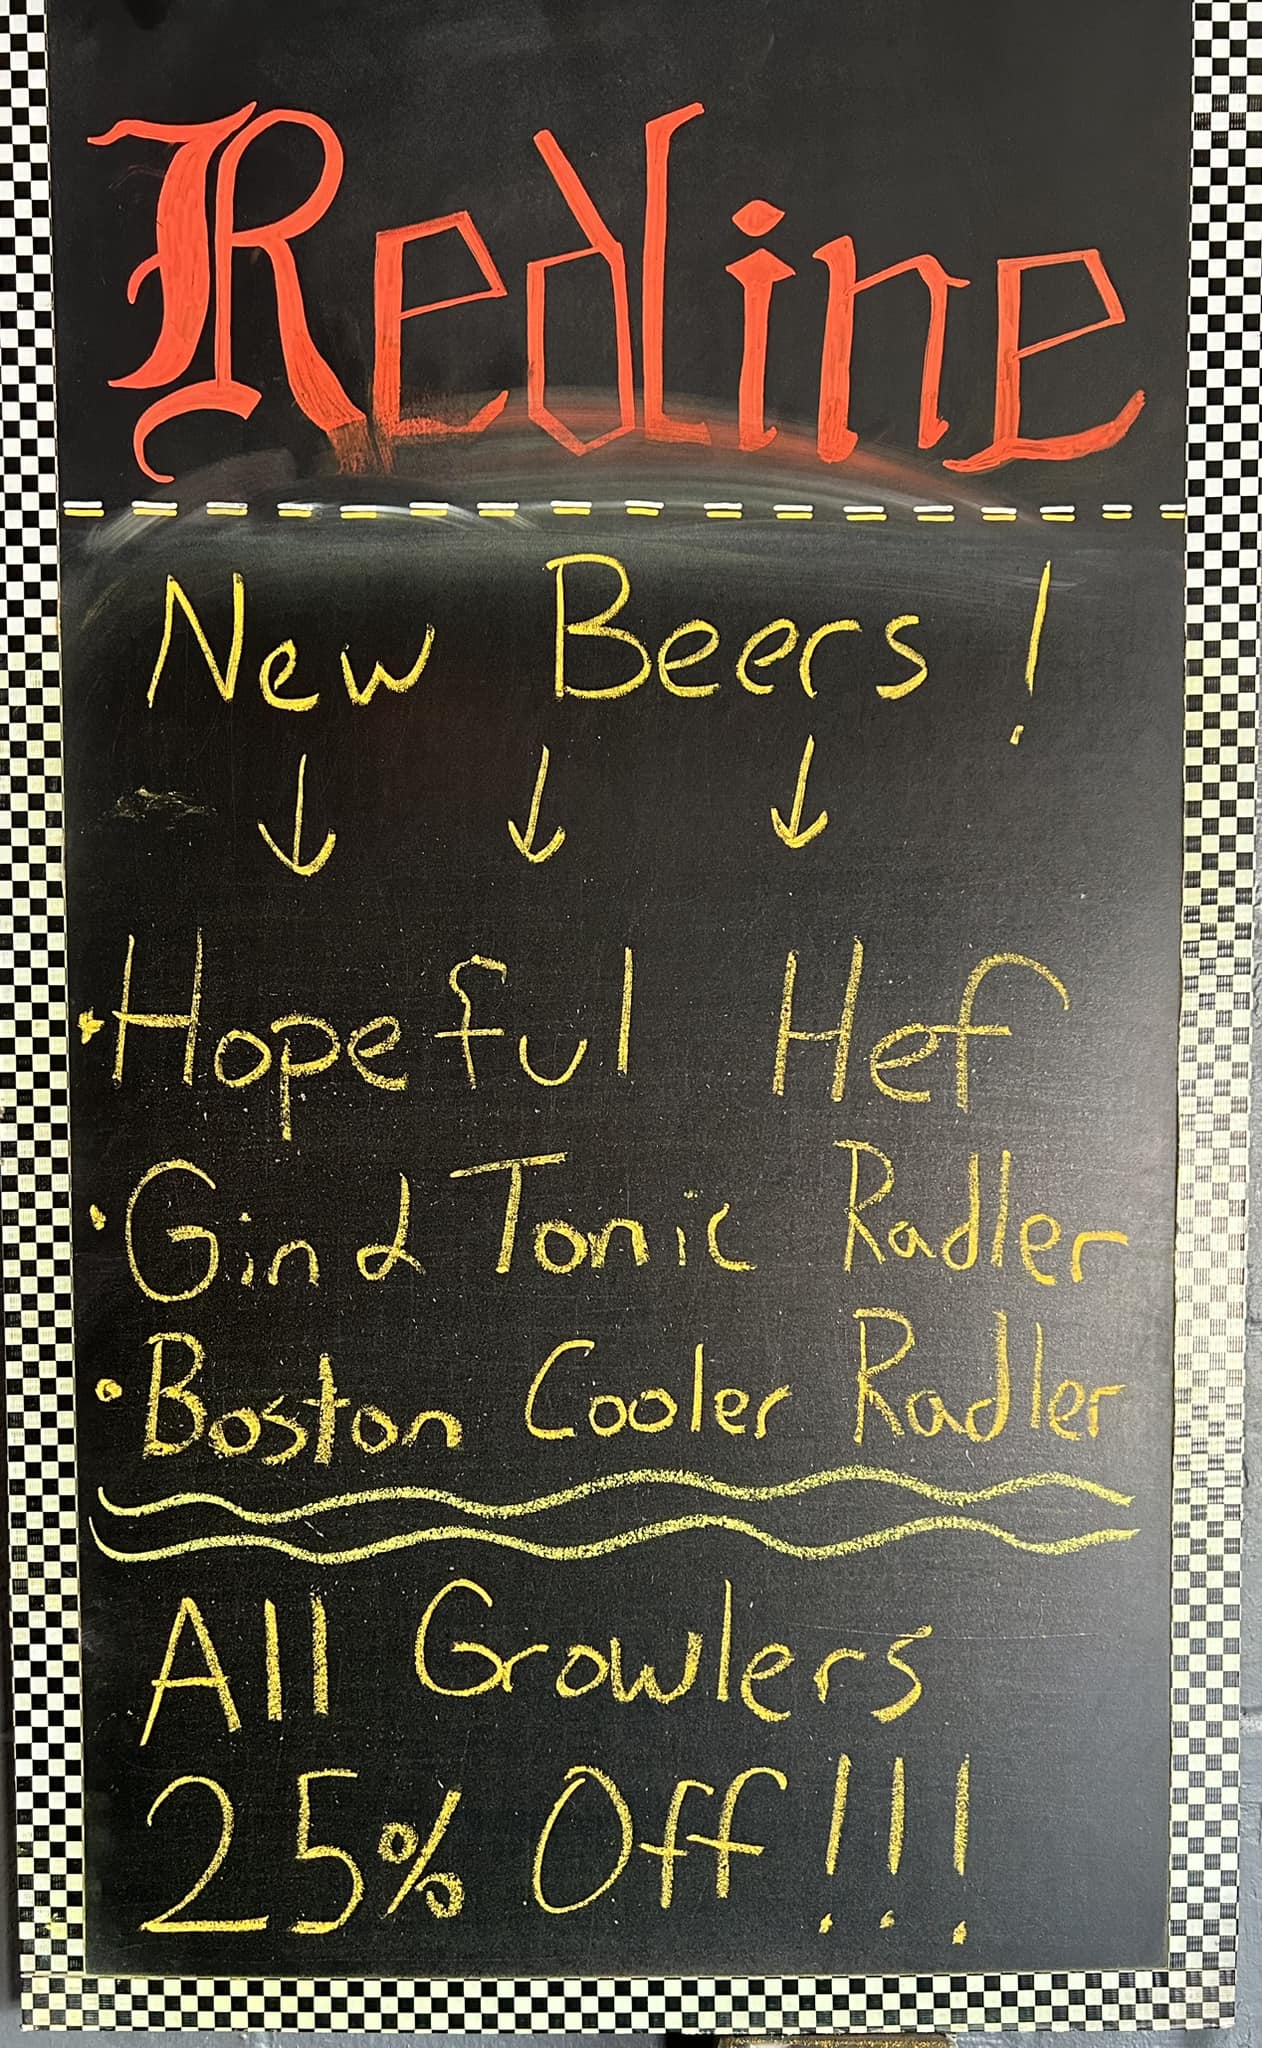 Redline
New Beers!
• Hopeful Hef
• Gin & Tonic Radler
• Boston Cooler Radler
All Growlers
25% Off!!!